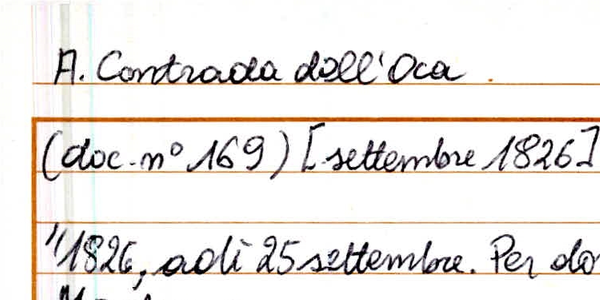 A. Contrada dell'Oca
(doc. n° 169) [settembre 1826]
"1826, adì 25 settembre. Per